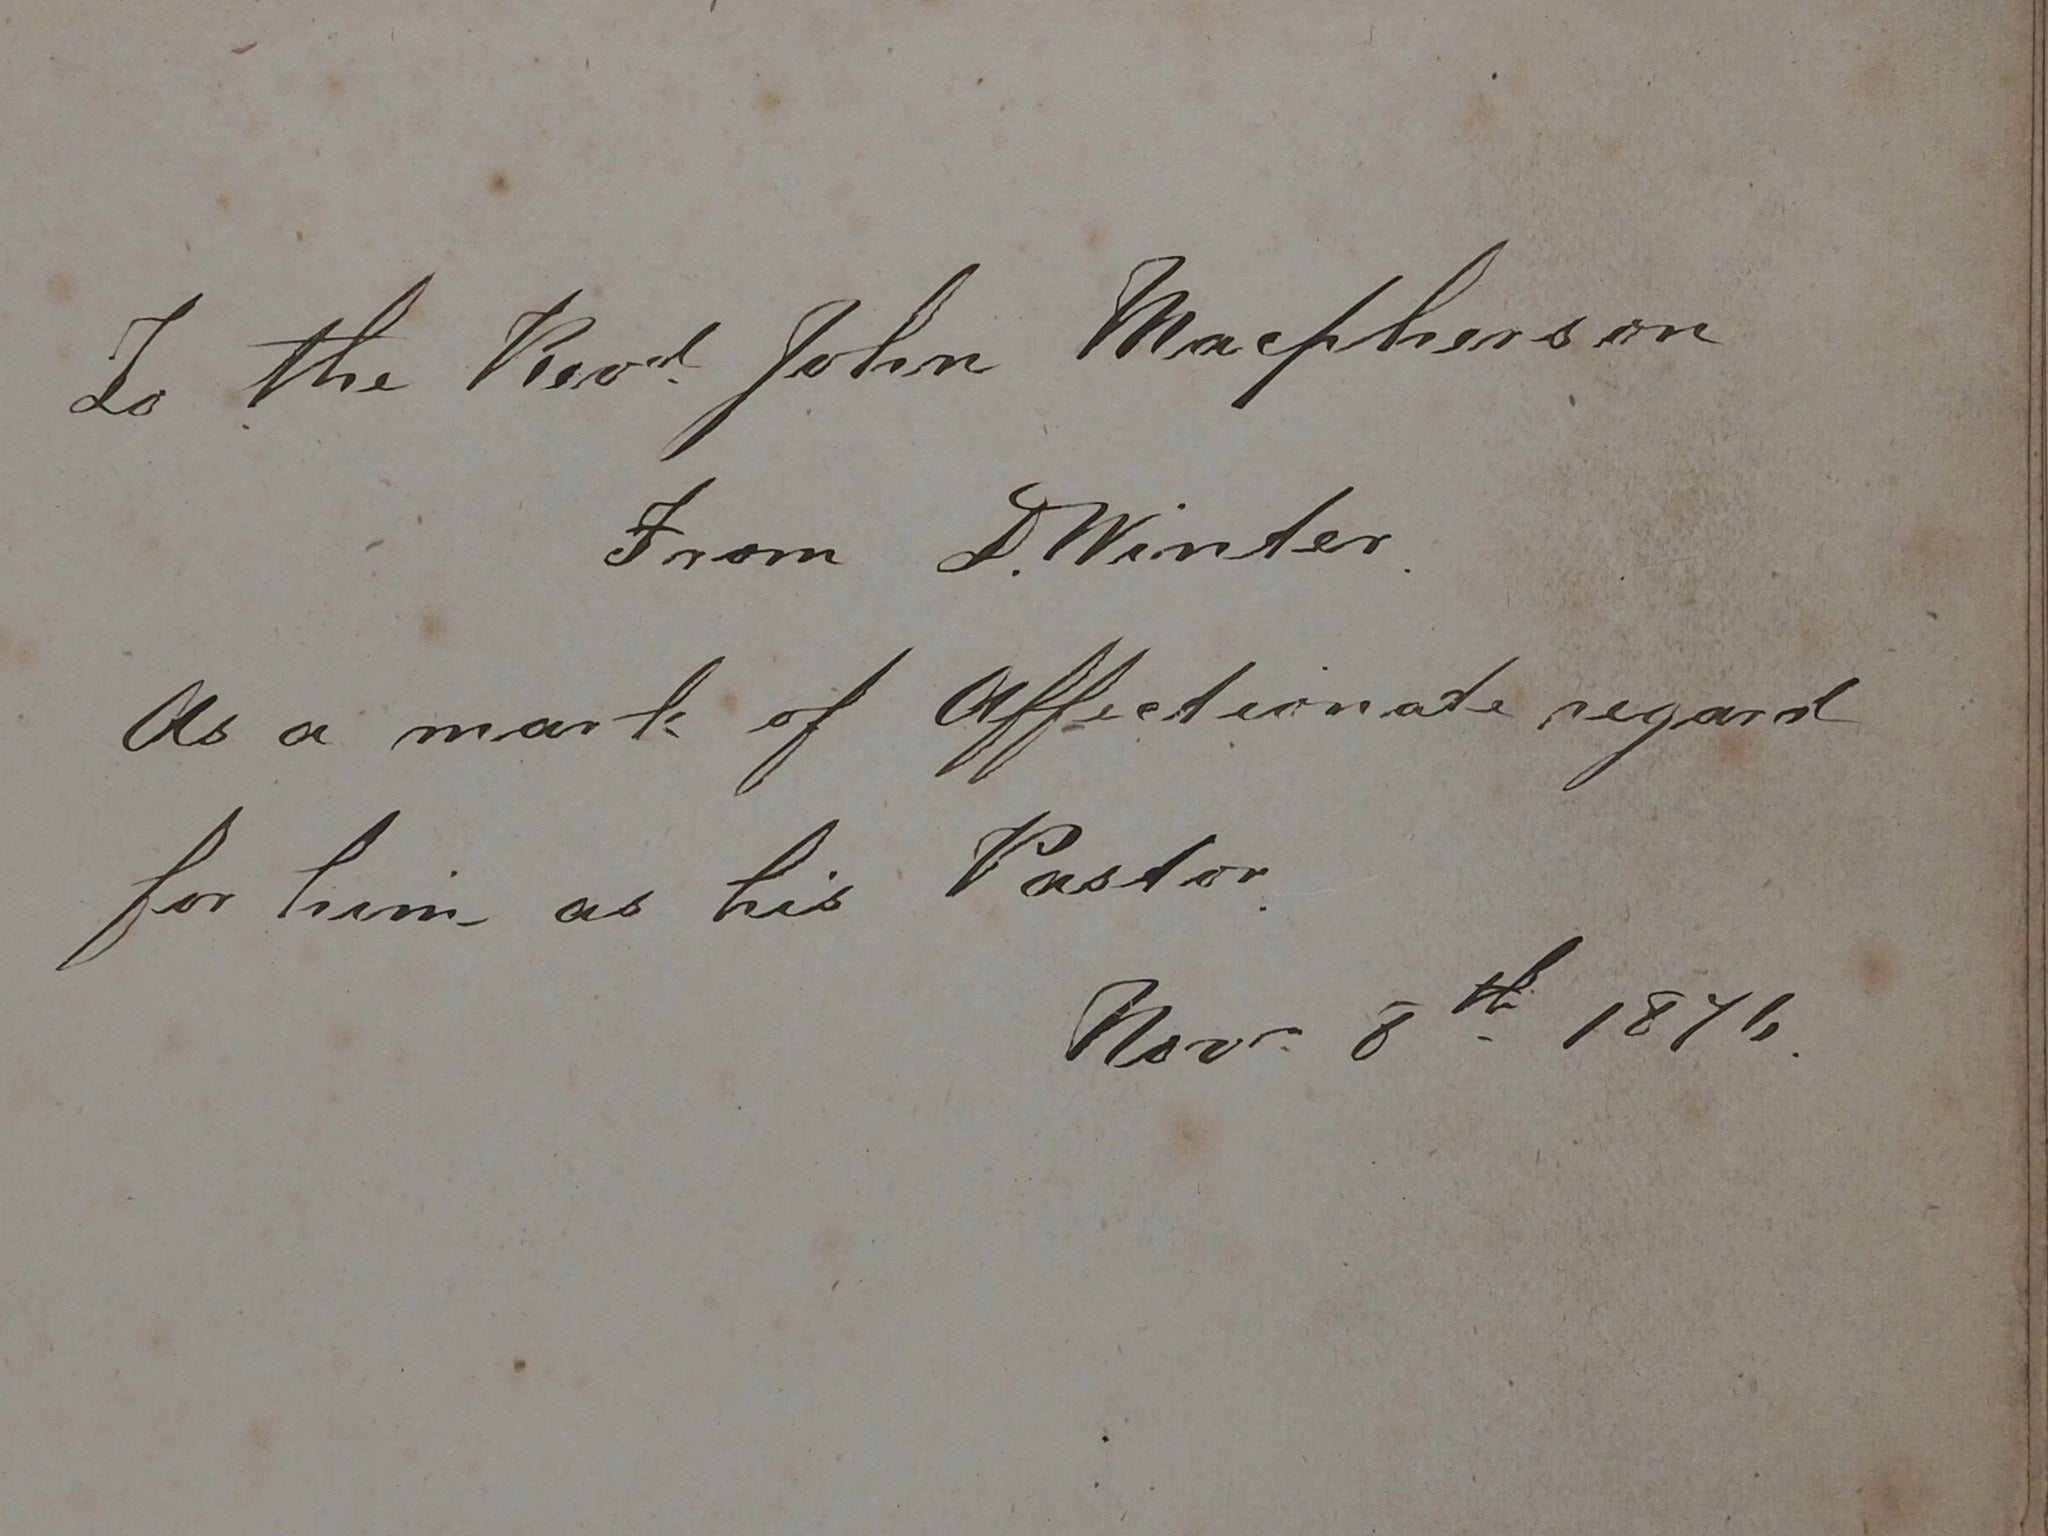 To the Revd. John Macpherson
From D. Winter.
As a mark of Affectionate regard
for him as his Pastor.
Novr. 8th. 1876.